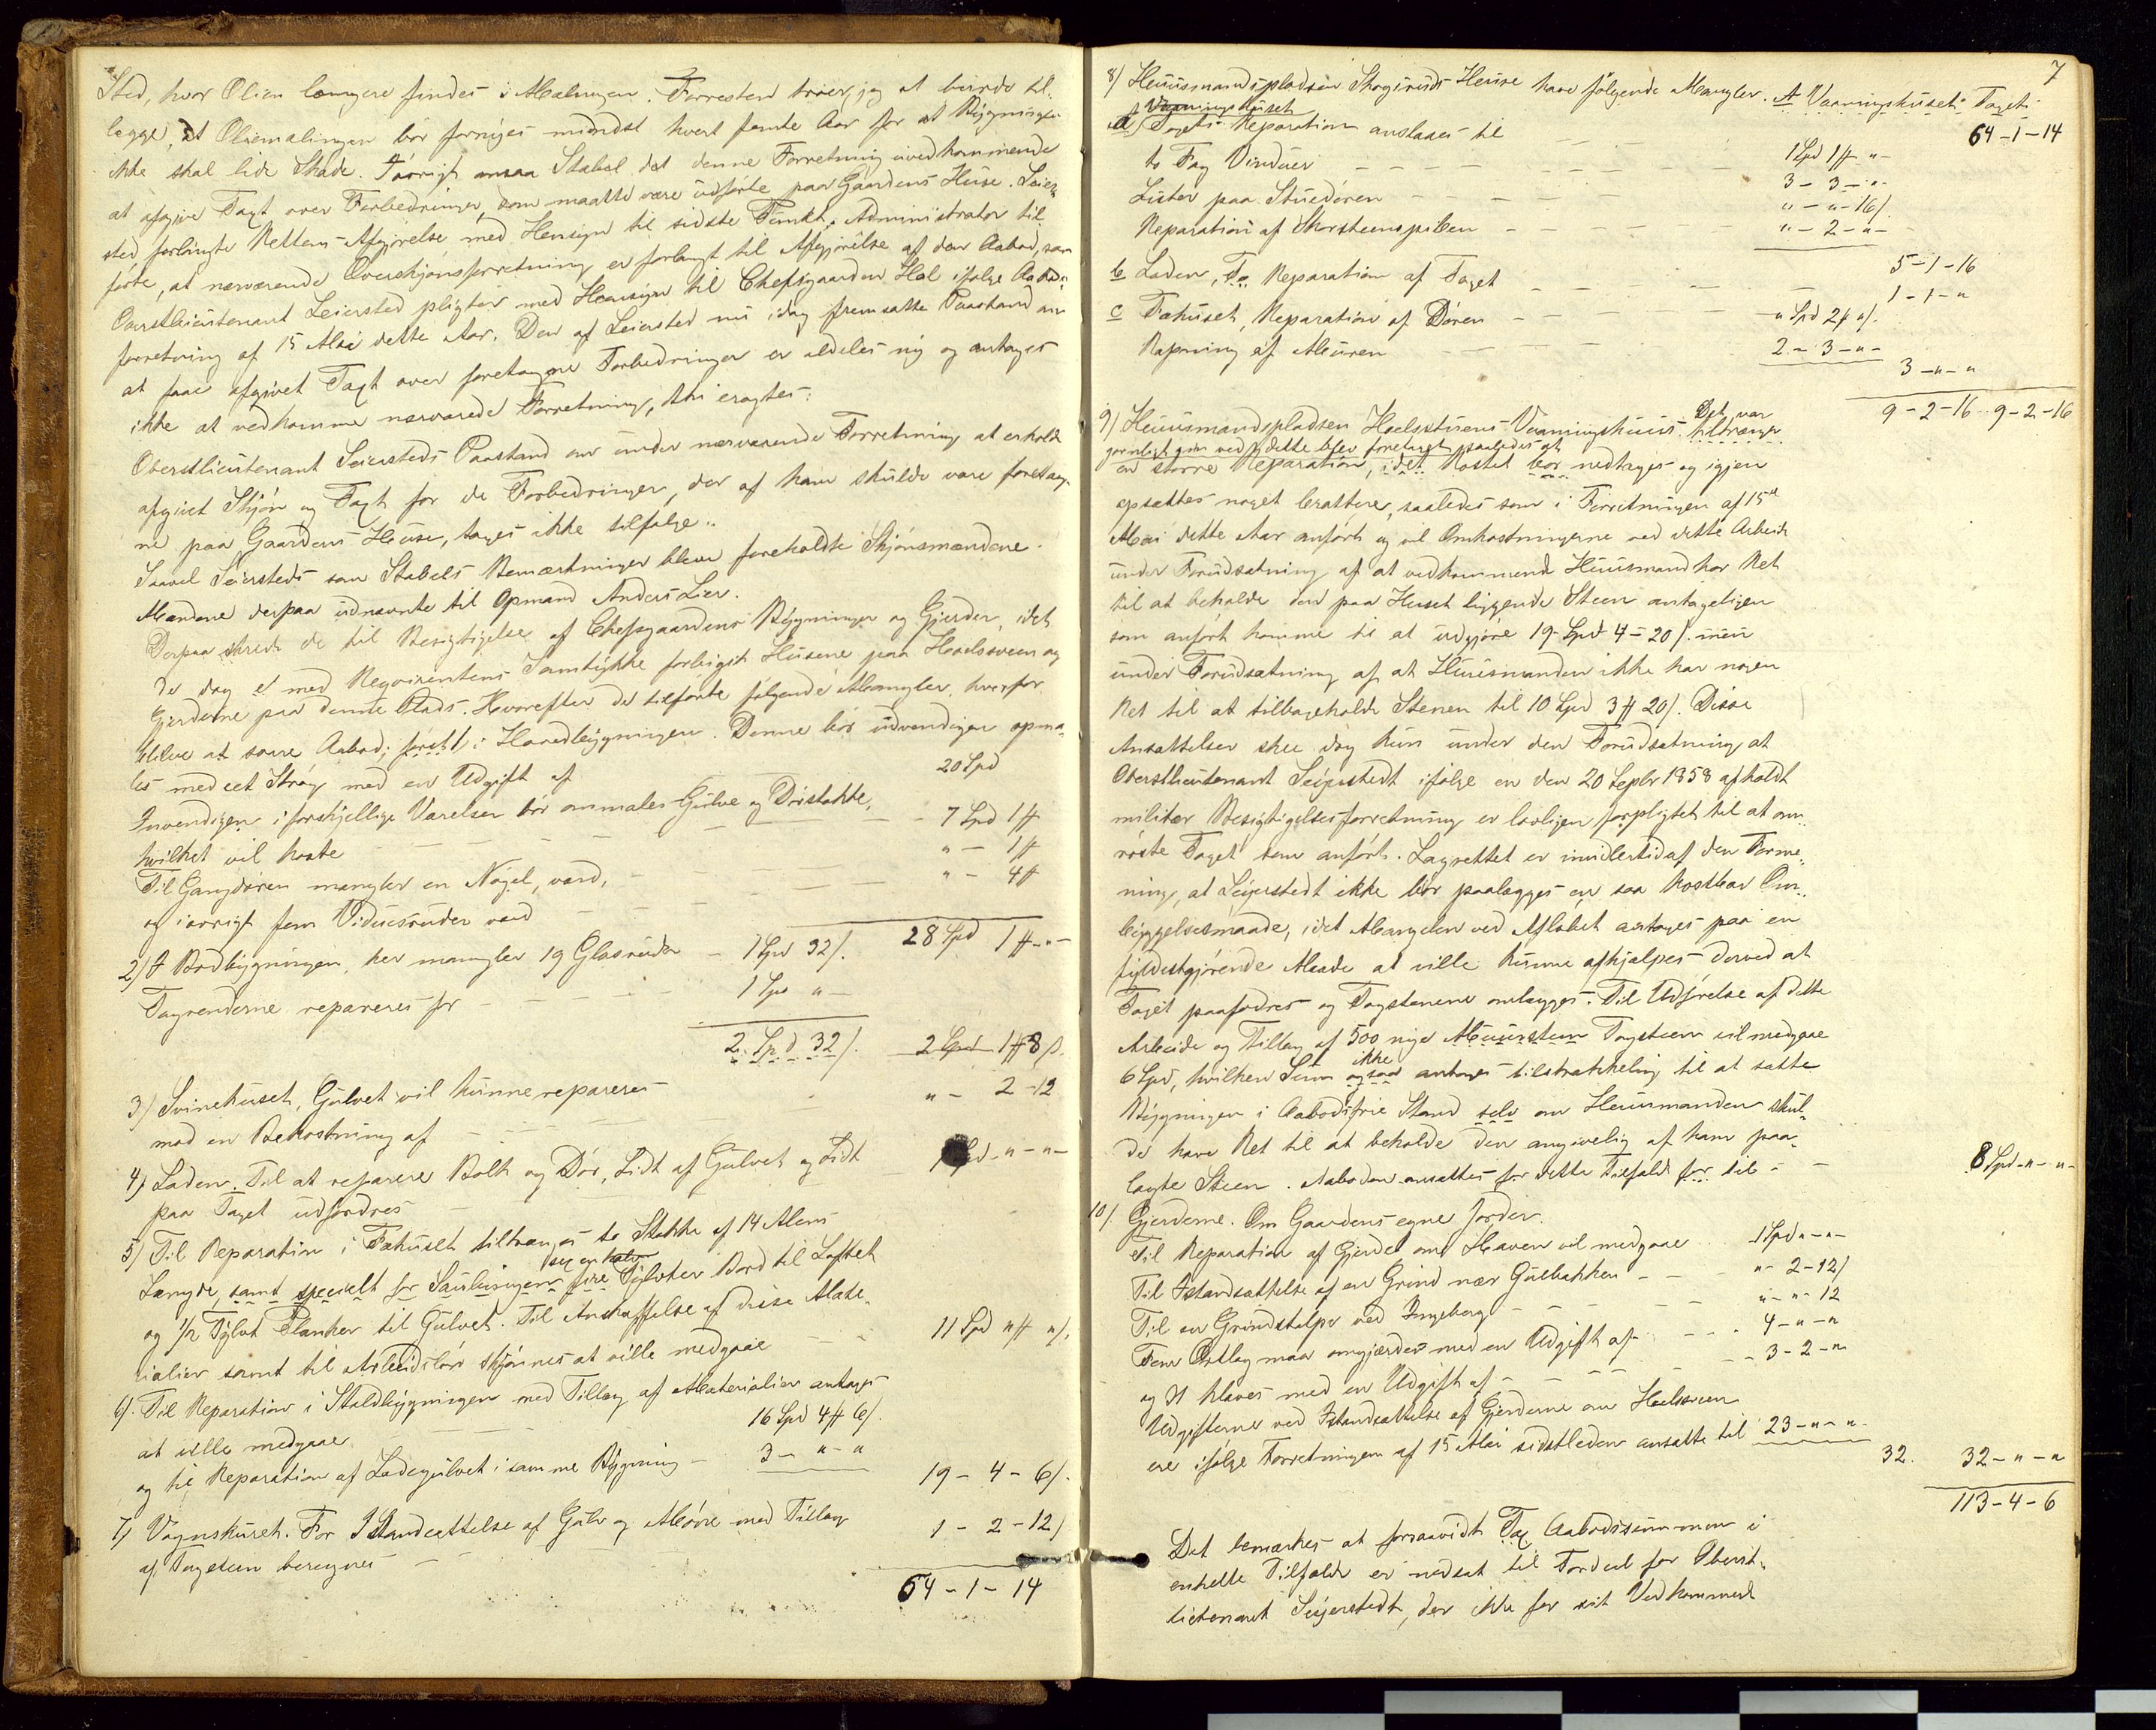 Sted, hvor Olien længere findes i Malingen. Forresten troer jeg at burde til-
lægge, at Oliemalingen bør fornyes mindst hvert femte Aar for at Bygningen
ikke skal lide Skade. Iøvrigt ansaa Stabel det denne Forretning uvedkommende
at afgive Taxt over Forbedringer, som maatte være udførte paa Gaardens Huse. Seier-
sted forlangte Rettens Afgjørelse med Hensyn til sidste Punkt. Administrator til-
førte, at nærværende Overskjønsforretning er forlangt til Afgjørelse af den Aabod, som
Oberstlieutenant Seiersted pligter med Hensyn til Chefsgaarden Hol ifølge Aabods-
forretning af 15 Mai dette Aar. Den af Seiersted nu idag fremsatte Paastand om
at faae afgivet Taxt over foretagne Forbedringer er aldeles ny og antages
ikke at vedkomme nærværende Forretning, thi eragtes:
Oberstlieutenant Seiersteds Paastand om under nærværende Forretning at erholde
afgivet Skjøn og Taxt for de Forbedringer, der af ham skulde være foretag-
ne paa Gaardens Huse, tages ikke tilfølge.
Saavel Seiersteds som Stabels Bemærkninger bleve foreholdte Skjønsmændene.
Mændene derpaa udnævnte til Opmand Anders Lier.
Derpaa skrede de til Besigtigelse af Chefsgaardens Bygninger og Gjerder, idet
de dog med Reqvirentens Samtykke forbigik Husene paa Hoelsveen og
Gjerderne paa denne Plads. Hvorefter de tilførte følgende Mangler, hvorfor
bliver at svare Aabod; først 1, i Hovedbygningen. Denne bør udvendigen opma-
les med eet Strøg med en Udgift af 20 Spd
Indvendigen i forskjellige Værelser bør opmales Gulve og Dørstokke,
hvilket vil koste 7 Spd 1 #
Til Gangdøren mangler en Nøgel, værd, " - 1 #
og iøvrigt fem Vinduesruder værd " - 4 #
28 Spd 1 # "
2) I Bordbygningen, her mangler 19 Glasruder - 1 Spd 32 /.
Tagrenderne repareres for 1 Spd " -
2 Spd 32 /. 2 Spd 1 # 8 /.
3) Svinehuset, Gulvet vil kunne repareres
med en Bekostning af " - 2 - 12
4) Laden. Til at reparere Bolk og Dør, Lidt af Gulvet og Lidt
paa Taget udfordres 1 Spd - " - " -
5) Til Reparation i Fæhuset tiltrænges to Stokke af 14 Alens
Længde, samt specielt for Saubingen fire Tylvter Bord til Loftet
og 1/2 Tylvt Planker til Gulvet. Til Anskaffelse af disse Mate-
rialier samt til Arbeidsløn skjønnes at ville medgaae 11 Spd " # " /.
6). Til Reparation i Staldbygningen med Tillæg af Materialier antages
at ville medgaae 16 Spd 4 # 6 /.
og til Reparation af Ladegulvet i samme Bygning - 3 - " - "
19 - 4 - 6 /.
7) Vognskuret. For Istandsættelse af Gulv og Møne med Tillæg
af Tagsteen beregnes 1 - 2 - 12 /
64 - 1 - 14
7
8) Huusmandspladsen Skogsruds Huse have følgende Mangler. A Vaaningshuset: Taget
Vaaningshuset 64 - 1 - 14
a) Tagets Reparation anslaaes til 1 Spd 1 # " -
to Fag Vinduer 3 - 3 - " -
Lister paa Stuedøren " - " - 16 /.
Reparation af Skorsteenspiben " - 2 - " -
5 - 1 - 16
b Laden, Reparation af Taget 1 - 1 - "
c Fæhuset, Reparation af Døren " Spd 2 # " /.
Rapning af Muren 2 - 3 - " -
3 - " - "
9 - 2 - 16 .. 9 - 2 - 16
9) Huusmandspladsen Hoelsstuens Vaaningshuus tiltrænger
Det var
en større Reparation, idet Røstet bør nedtages og igjen
opsættes noget brattere, saaledes som i Forretningen af 15de
Mai dette Aar anført og vil Omkostningerne ved dette Arbeide
under Forudsætning af at vedkommende Huusmand har Ret
til at beholde den paa Huset liggende Steen antageligen
som anført komme til at udgjøre 19 Spd - 4 - 20 /. men
under Forudsætning af at Huusmanden ikke har nogen
Ret til at tilbageholde Stenen til 10 Spd 3 # 20 /. Disse
Ansættelser skee dog kun under den Forudsætning at
Oberstlieutenant Seijerstedt ifølge en den 20 Septbr 1858 afholdt
militær Besigtigelsesforretning er lovligen forpligtet til at om-
røste Taget som anført. Lagrettet er imidlertid af den Forme-
ning, at Seijerstedt ikke bør paalægges en saa kostbar Om-
byggelsesmaade, idet Mangelen ved Afløbet antages paa en
fyldestgjørende Maade at ville kunne afhjælpes derved at
Taget paafodres og Tagstenene omlægges. Til Udførelse af dette
Arbeide og Tillæg af 500 nye Muursteen Tagsteen vil medgaae
6 Spd, hvilken Sum ogsaa ikke antages tilstrækkelig til at sætte
Bygningen i aabodsfrie Stand selv om Huusmanden skul-
de have Ret til at beholde den angivelig af ham paa-
lagte Steen. Aaboden ansættes for dette Tilfælde for til - 8 Spd - " - " -
10). Gjerderne. Om Gaardens egne Jorder.
Til Reparation af Gjerdet om Haven vil medgaae 1 Spd " - " -
Til Istandsættelse af en Grind nær Gulbakken " - 2 - 12 /
Til en Grindstolpe ved Ingeberg " - " - 12
Fem Ortlag maa omgjærdes med en Udgift af 4 - " - "
og 21 klaves med en Udgift af 3 - 2 - "
Udgifterne ved Istandsættelse af Gjerderne om Hoelsveen
ere ifølge Forretningen af 15 Mai sidstleden ansatte til 23 - " - " -
32. 32 - " - "
113 - 4 - 6
Det bemærkes at forsaavidt Tax Aabodssummen i
enkelte Tilfælde er nedsat til Fordeel for Oberst-
lieutenant Seijerstedt, der ikke for sit Vedkommende